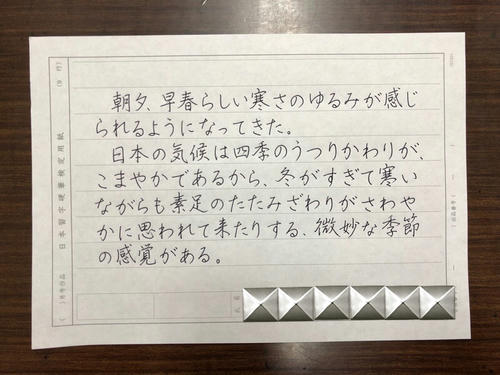 朝夕、早春らしい寒さのゆるみが感じ
られるようになってきた。
日本の気候は四季のうつりかわりが、
こまやかであるから、冬がすぎて寒い
ながらも素足のたたみざわりがさわや
かに思われて来たりする、微妙な季節
の感覚がある。
日本習字硬筆検定用紙